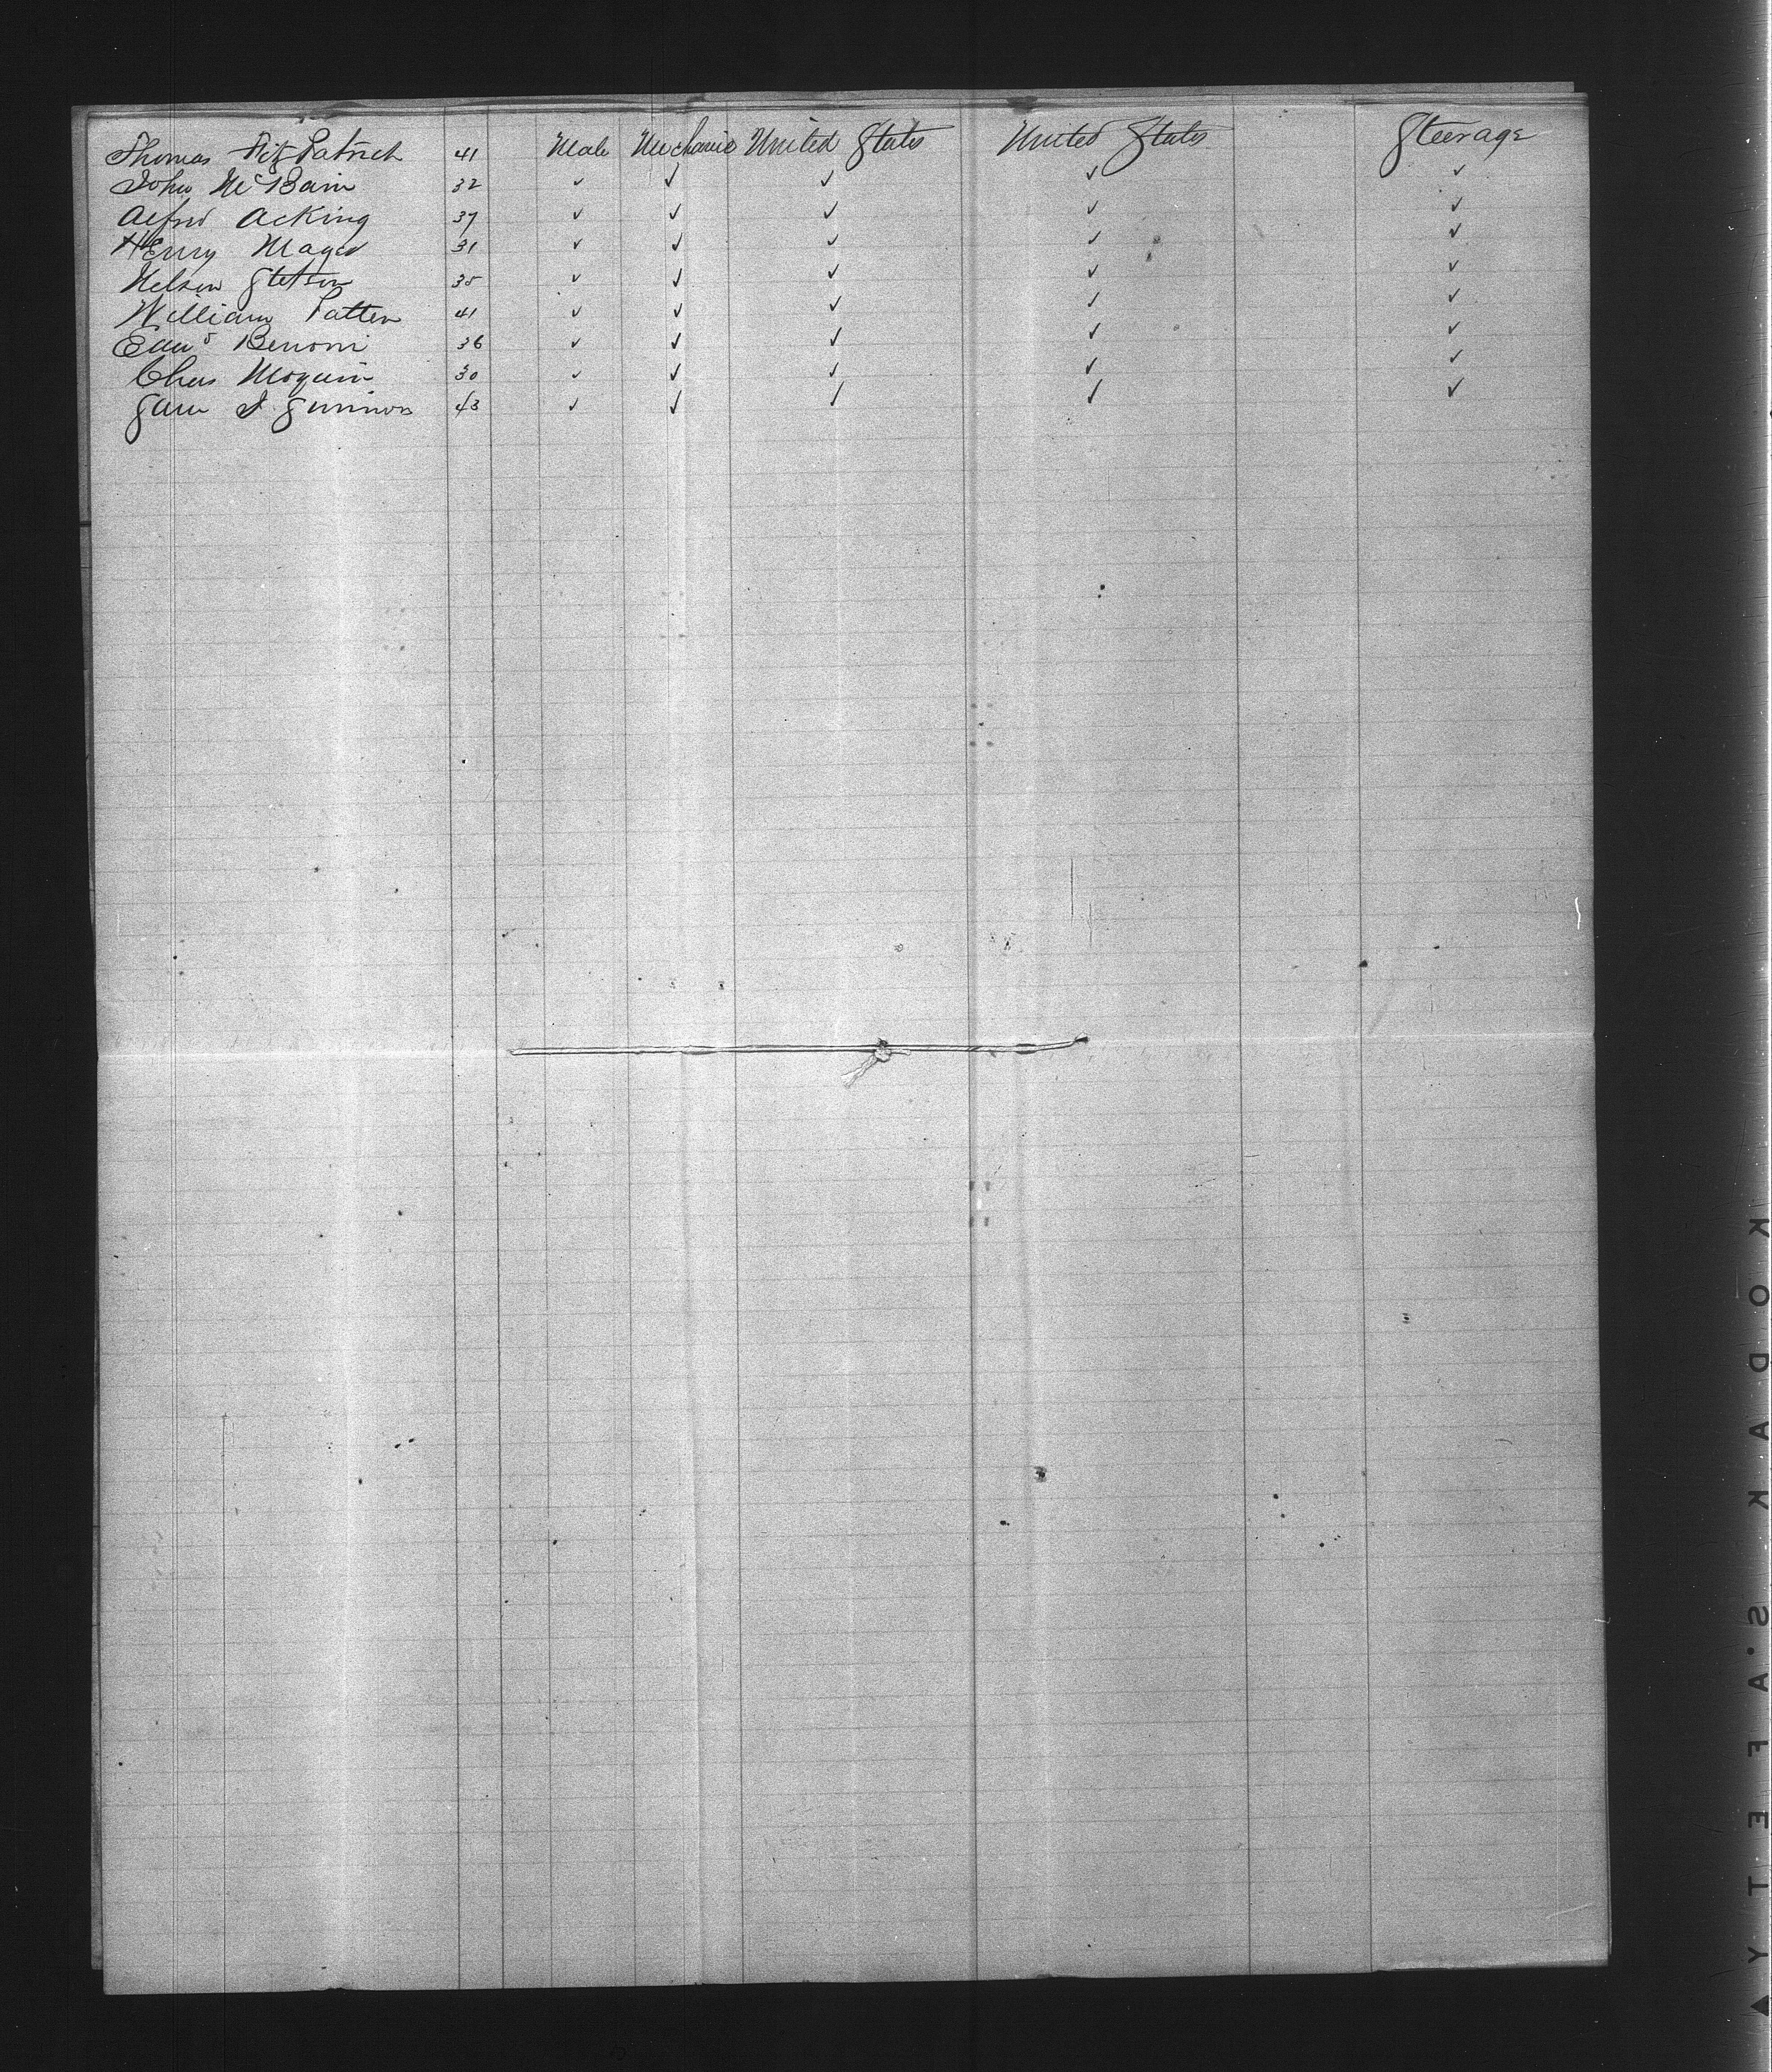 Thomas Fitz Patrick 41 Male Mechanic United States United States Steerage
John McBain 32 ✓ ✓ ✓ ✓ ✓
Alfred Acking 37 ✓ ✓ ✓ ✓ ✓
Henry Mager 31 ✓ ✓ ✓ ✓ ✓
Nelson Stetson 35 ✓ ✓ ✓ ✓ ✓
William Patten 41 ✓ ✓ ✓ ✓ ✓
Edwd Benoni 36 ✓ ✓ ✓ ✓ ✓
Chas Moquin 30 ✓ ✓ ✓ ✓ ✓
Sam I Gunnison 43 ✓ ✓ ✓ ✓ ✓
KODAK S'AFETY